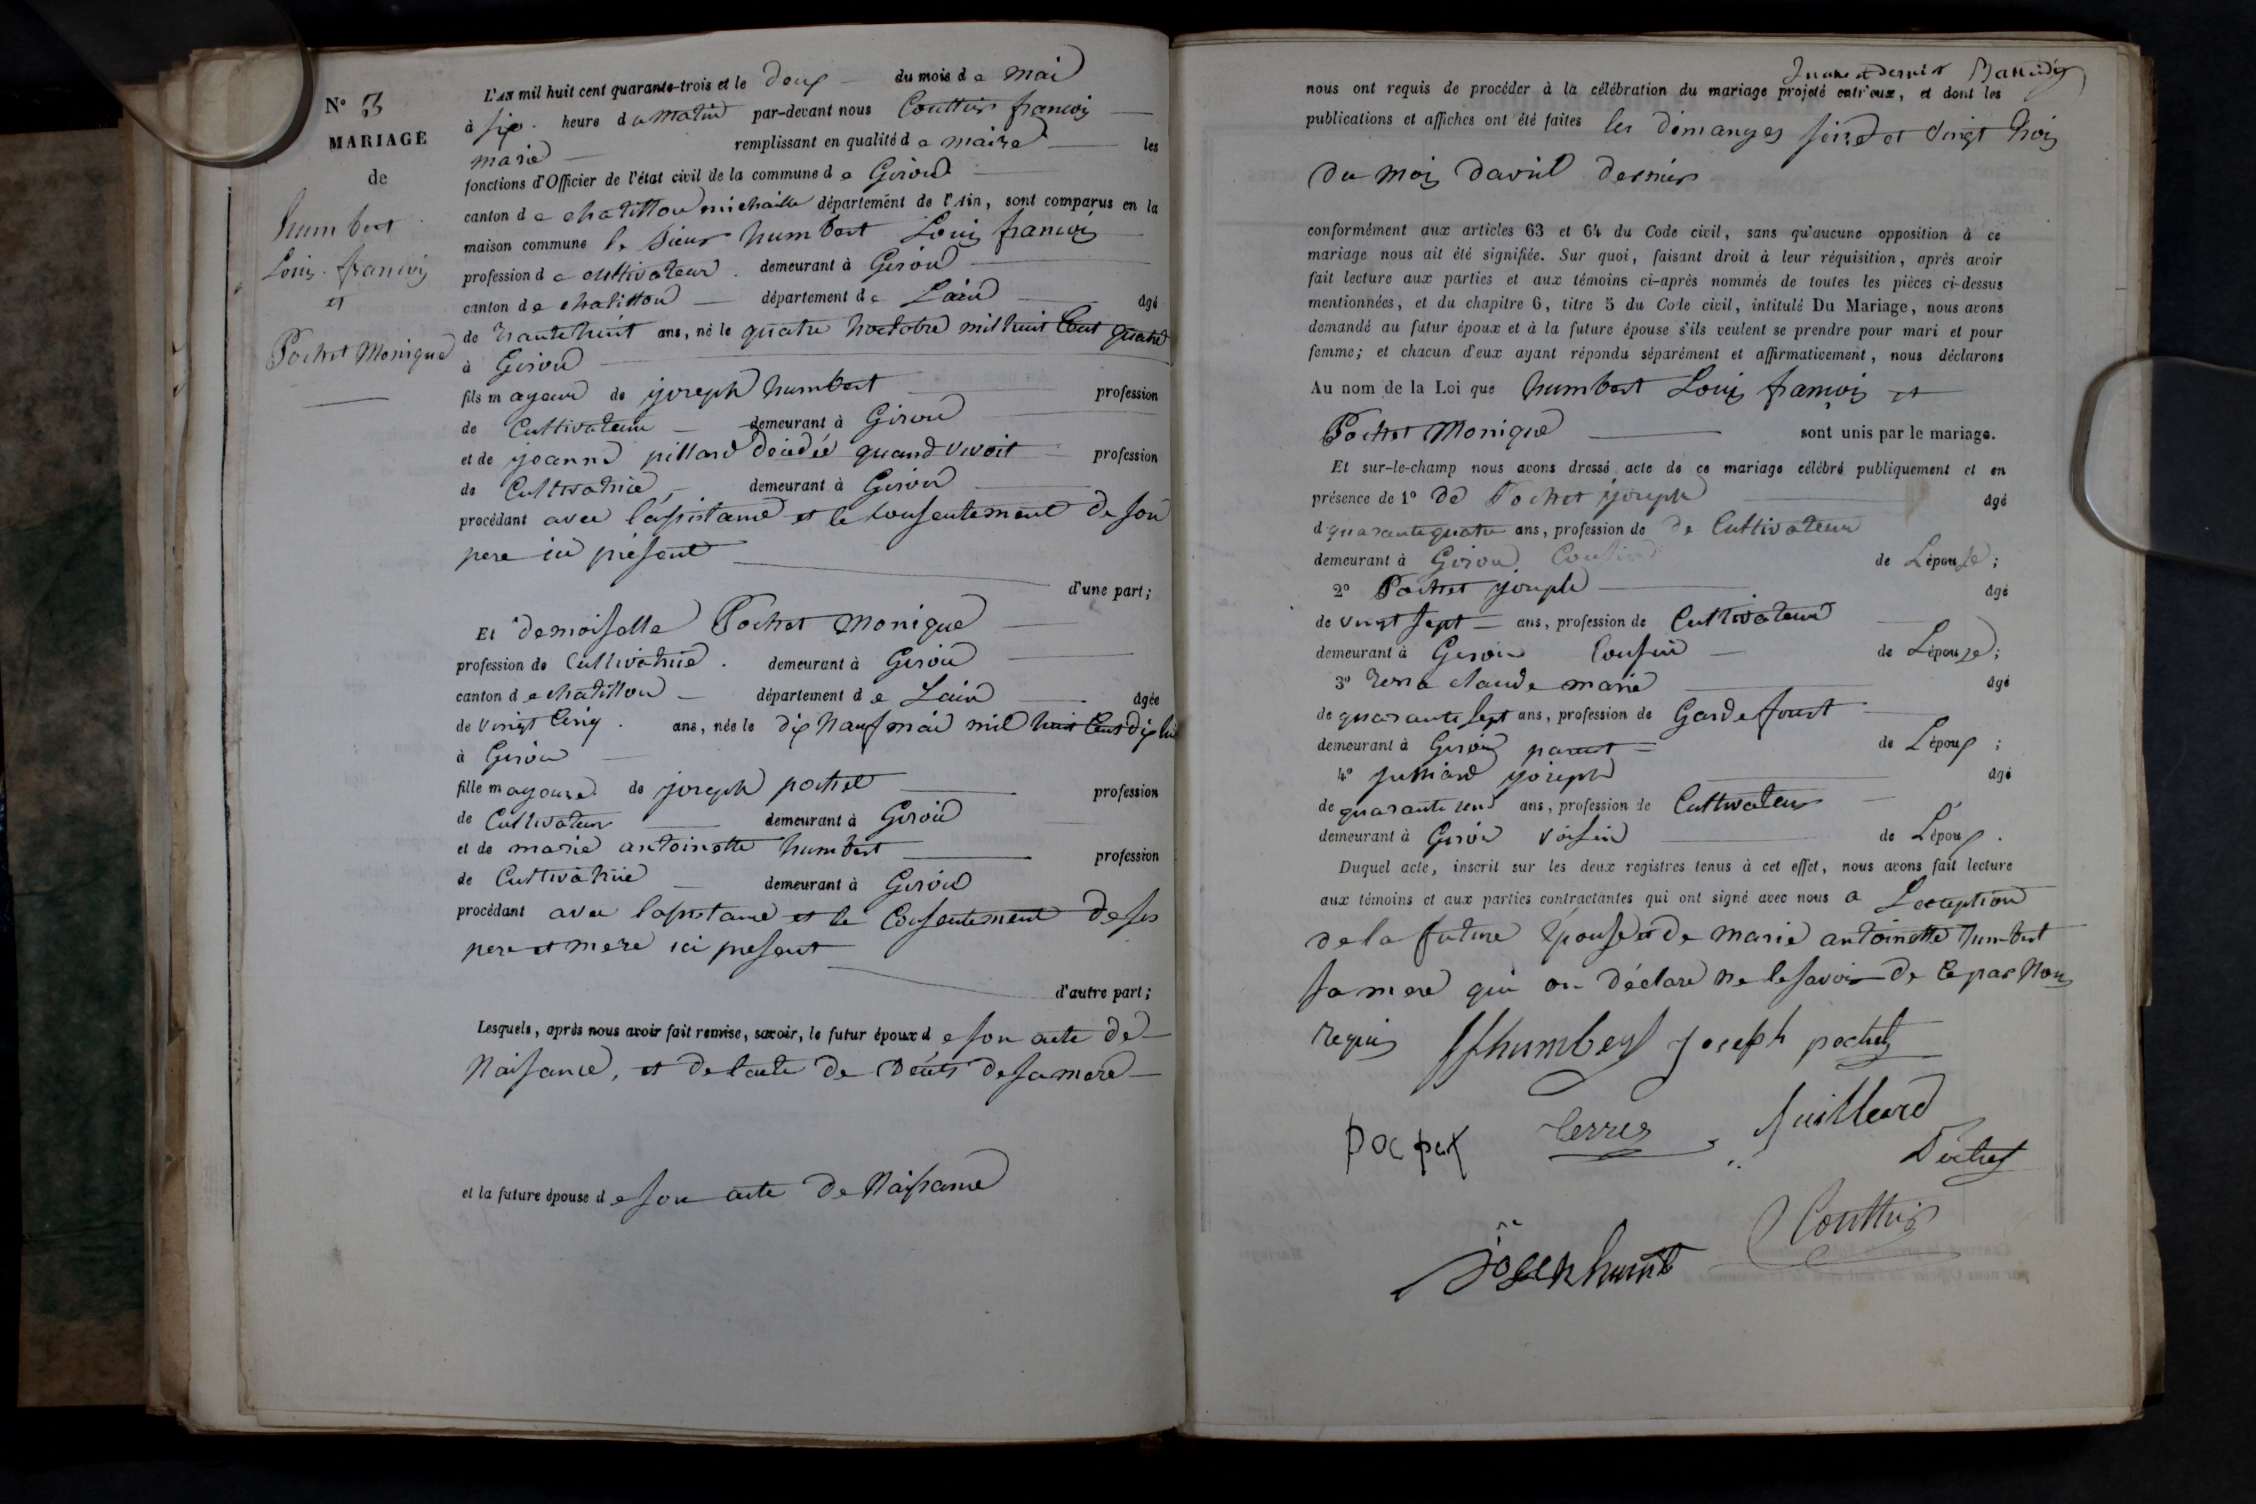 N° 3
MARIAGE
de
humbert
Louis françois
et
Pochet Monique
L'AN mil huit cent quarante-trois et le deux du mois de mai
à six heure du matin par-devant nous Couttier françois
marie remplissant en qualité de maire les
fonctions d'Officier de l'état civil de la commune de Giron
canton de chatillon michaille département de l'Ain, sont comparus en la
maison commune le sieur humbert Louis françois
profession de cultivateur demeurant à Giron
canton de chatillon département de Lain âgé
de trante huit ans, né le quatre hoctobre mil huit Cent quatre
à Giron
fils mayeur de joseph humbert profession
de Cultivateur demeurant à Giron
et de jeanne pillard décédée quand vivoit profession
de Cultivatrice demeurant à Giron
procédant avec lasistance et le Consentement de son
pere ici présent
d'une part;
Et demoiselle Pochet Monique
profession de Cultivatrice demeurant à Giron
canton de chatillon département de Lain âgée
de vingt Cinq ans, née le dix Neuf mai mil huit Cent dix huit
à Giron
fille mayeure de joseph pochet profession
de Cultivateur demeurant à Giron
et de marie antoinette humbert profession
de Cultivatrice demeurant à Giron
procédant avec lasistance et le Consentement de ses
pere et mere ici present
d'autre part;
Lesquels, après nous avoir fait remise, savoir, le futur époux de son acte de
Naisance, et de lacte de décès de sa mere
et la future épouse de son acte de Naisance
nous ont requis de procéder à la célébration du mariage projeté entr'eux, et dont les
publications et affiches ont été faites les dimanges seize et vingt trois
du mois davril dernier
conformément aux articles 63 et 64 du Code civil, sans qu'aucune opposition à ce
mariage nous ait été signifiée. Sur quoi, faisant droit à leur réquisition, après avoir
fait lecture aux parties et aux témoins ci-après nommés de toutes les pièces ci-dessus
mentionnées, et du chapitre 6, titre 5 du Code civil, intitulé Du Mariage, nous avons
demandé au futur époux et à la future épouse s'ils veulent se prendre pour mari et pour
femme; et chacun d'eux ayant répondu séparément et affirmativement, nous déclarons
Au nom de la Loi que humbert Louis françois et
Pochet Monique sont unis par le mariage.
Et sur-le-champ nous avons dressé acte de ce mariage célébré publiquement et en
présence de 1° de Pochet joseph âgé
d quarante quatre ans, profession de de Cultivateur
demeurant à Giron Cousin de Lépouse;
2° Pochet joseph âgé
de vingt sept ans, profession de Cultivateur
demeurant à Giron Cousin de Lépouse;
3° claude marie âgé
de quarante sept ans, profession de Garde forest
demeurant à Giron parent de Lépoux;
4° juilliard joseph âgé
de quarante ans, profession de Cultivateur
demeurant à Giron voisin de Lépoux.
Duquel acte, inscrit sur les deux registres tenus à cet effet, nous avons fait lecture
aux témoins et aux parties contractantes qui ont signé avec nous a Lexception
de la future Epouse et de marie antoinette humbert
sa mere qui on déclaré ne le savoir de ce par Nous
requis humbert Joseph pochet
pochet juilliard
Pochet
Couttier
joseph humb